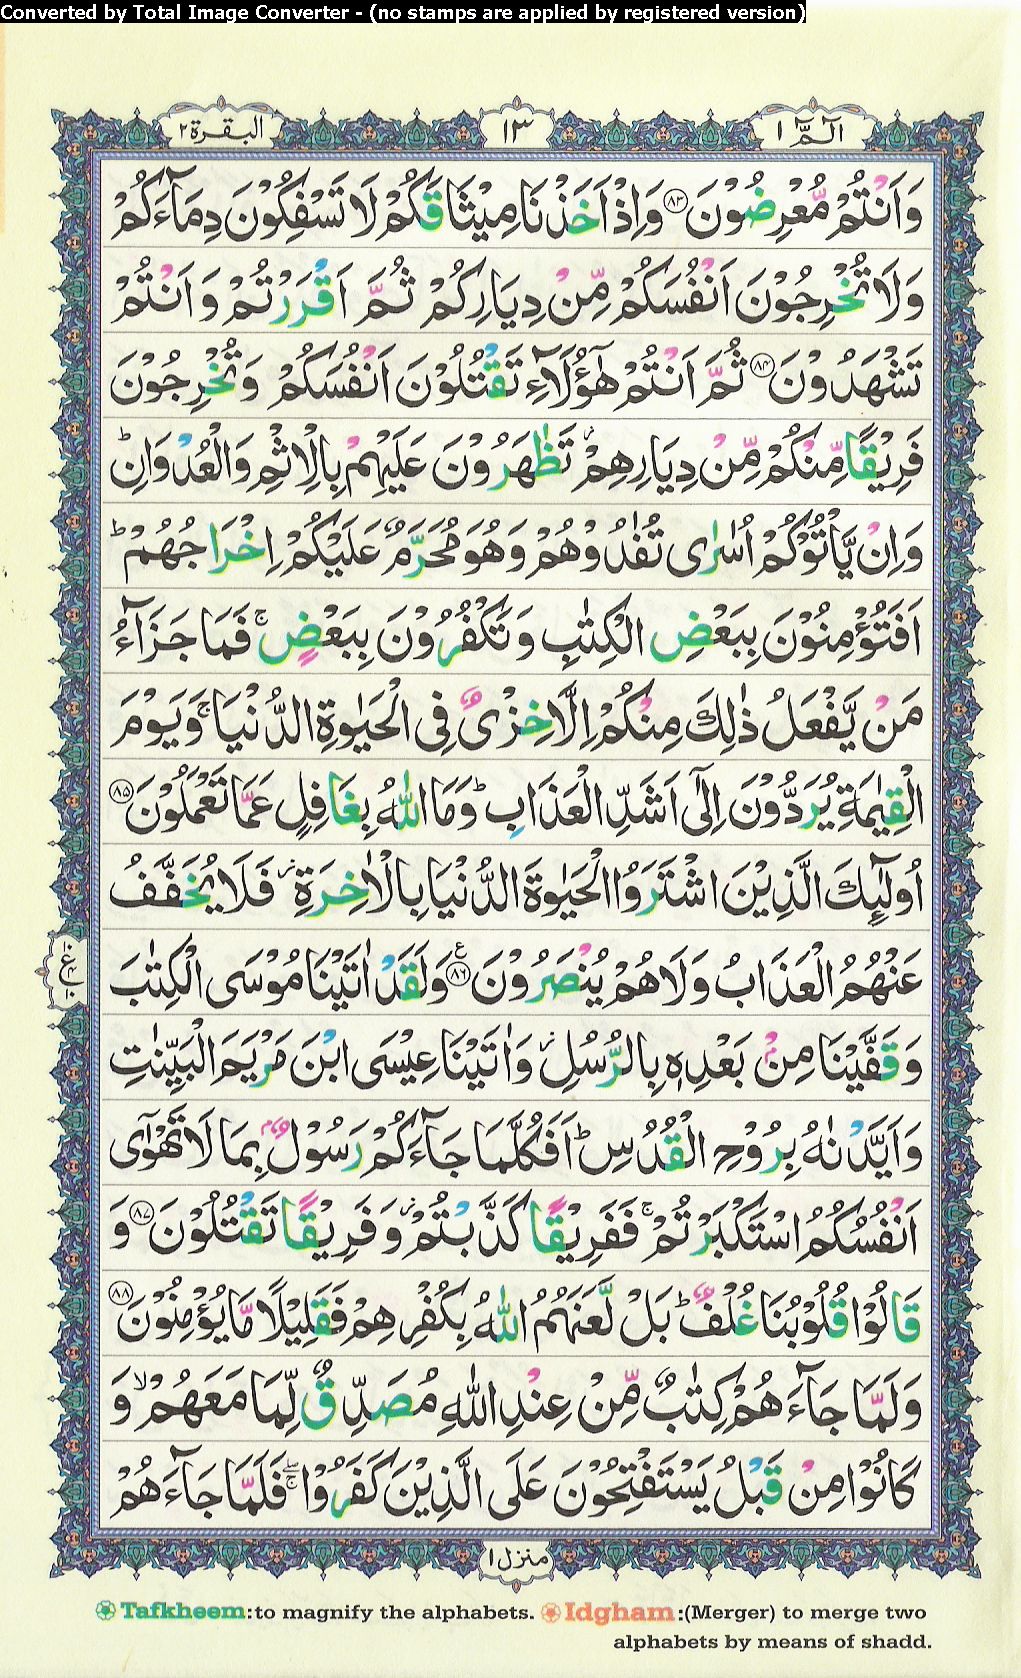 Converted by Total Image Converter - (no stamps are applied by registered version)
الٓمّٓ ١
١٣
البقرة ٢
وَاَنْتُمْ مُّعْرِضُوْنَ ﴿٨٣﴾ وَاِذْ اَخَذْنَا مِيْثَاقَكُمْ لَا تَسْفِكُوْنَ دِمَآءَكُمْ
وَلَا تُخْرِجُوْنَ اَنْفُسَكُمْ مِّنْ دِيَارِكُمْ ثُمَّ اَقْرَرْتُمْ وَاَنْتُمْ
تَشْهَدُوْنَ ﴿٨٤﴾ ثُمَّ اَنْتُمْ هٰٓؤُلَآءِ تَقْتُلُوْنَ اَنْفُسَكُمْ وَتُخْرِجُوْنَ
فَرِيْقًا مِّنْكُمْ مِّنْ دِيَارِهِمْ ز تَظٰهَرُوْنَ عَلَيْهِمْ بِالْاِثْمِ وَالْعُدْوَانِ ؕ
وَاِنْ يَّاْتُوْكُمْ اُسٰرٰى تُفٰدُوْهُمْ وَهُوَ مُحَرَّمٌ عَلَيْكُمْ اِخْرَاجُهُمْ ؕ
اَفَتُؤْمِنُوْنَ بِبَعْضِ الْكِتٰبِ وَتَكْفُرُوْنَ بِبَعْضٍ ۚ فَمَا جَزَآءُ
مَنْ يَّفْعَلُ ذٰلِكَ مِنْكُمْ اِلَّا خِزْىٌ فِى الْحَيٰوةِ الدُّنْيَا ۚ وَيَوْمَ
الْقِيٰمَةِ يُرَدُّوْنَ اِلٰٓى اَشَدِّ الْعَذَابِ ؕ وَمَا اللّٰهُ بِغَافِلٍ عَمَّا تَعْمَلُوْنَ ﴿٨٥﴾
اُولٰٓئِكَ الَّذِيْنَ اشْتَرَوُا الْحَيٰوةَ الدُّنْيَا بِالْاٰخِرَةِ ز فَلَا يُخَفَّفُ
عَنْهُمُ الْعَذَابُ وَلَا هُمْ يُنْصَرُوْنَ ﴿٨٦﴾ ع وَلَقَدْ اٰتَيْنَا مُوْسَى الْكِتٰبَ
وَقَفَّيْنَا مِنْۢ بَعْدِهٖ بِالرُّسُلِ ز وَاٰتَيْنَا عِيْسَى ابْنَ مَرْيَمَ الْبَيِّنٰتِ
وَاَيَّدْنٰهُ بِرُوْحِ الْقُدُسِ ؕ اَفَكُلَّمَا جَآءَكُمْ رَسُوْلٌۢ بِمَا لَا تَهْوٰٓى
اَنْفُسُكُمُ اسْتَكْبَرْتُمْ ۚ فَفَرِيْقًا كَذَّبْتُمْ ز وَفَرِيْقًا تَقْتُلُوْنَ ﴿٨٧﴾ وَ
قَالُوْا قُلُوْبُنَا غُلْفٌ ؕ بَلْ لَّعَنَهُمُ اللّٰهُ بِكُفْرِهِمْ فَقَلِيْلًا مَّا يُؤْمِنُوْنَ ﴿٨٨﴾
وَلَمَّا جَآءَهُمْ كِتٰبٌ مِّنْ عِنْدِ اللّٰهِ مُصَدِّقٌ لِّمَا مَعَهُمْ ۙ وَ
كَانُوْا مِنْ قَبْلُ يَسْتَفْتِحُوْنَ عَلَى الَّذِيْنَ كَفَرُوْا ۖۚ فَلَمَّا جَآءَهُمْ
منزل ١
Tafkheem:to magnify the alphabets. Idgham:(Merger) to merge two
alphabets by means of shadd.